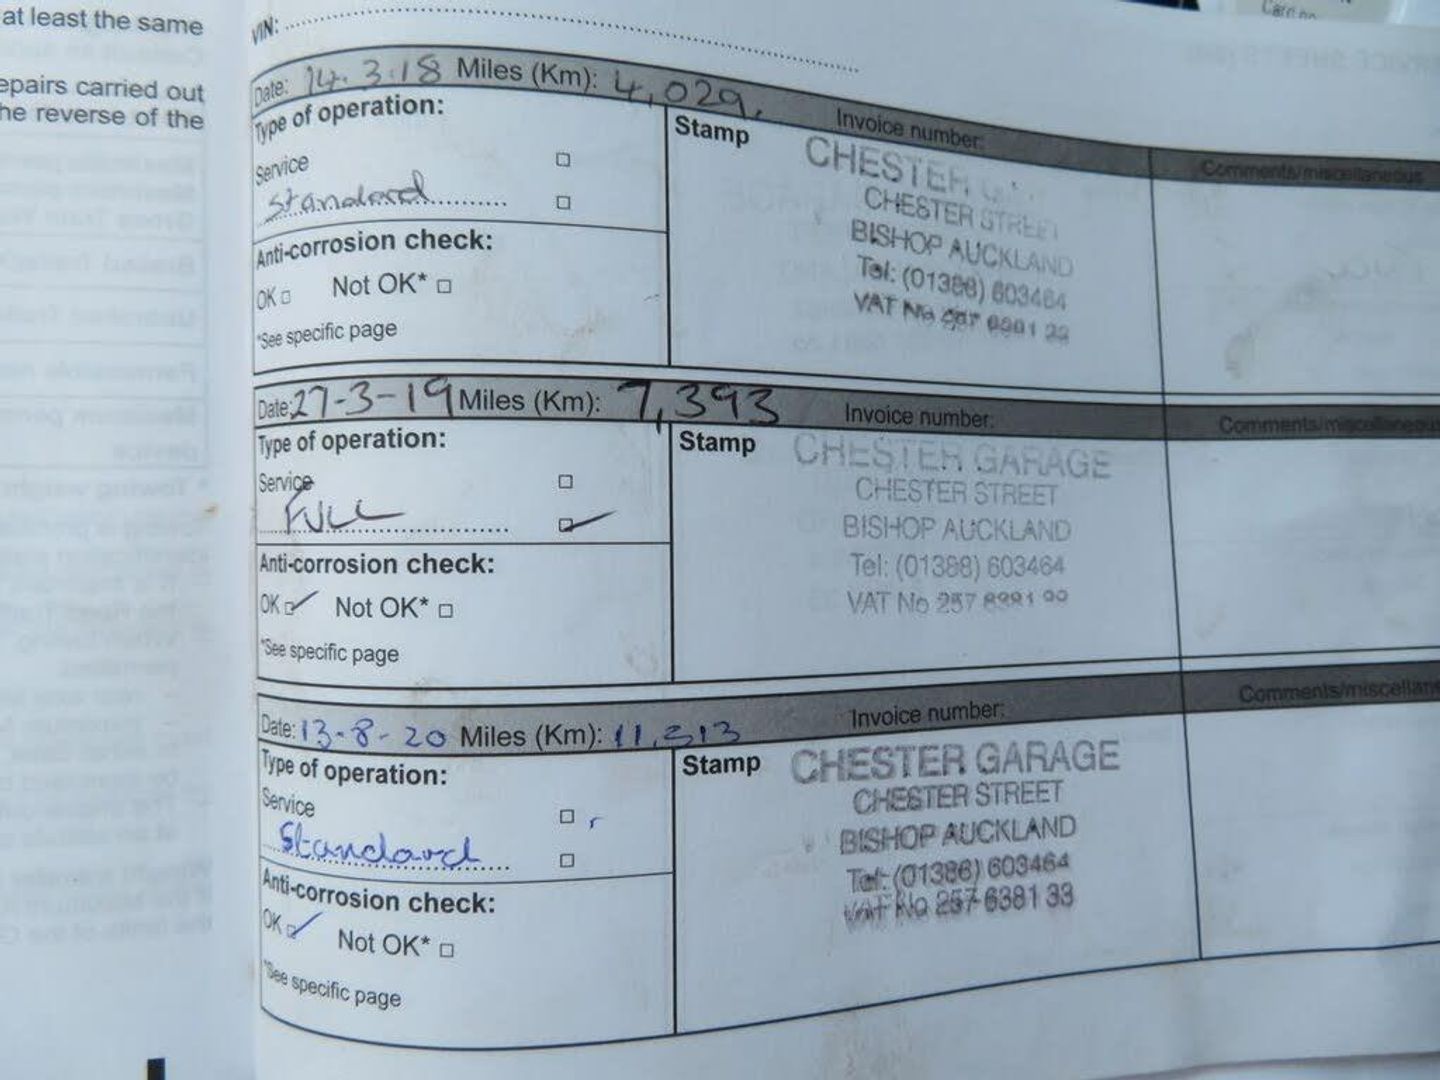 at least the same
epairs carried out
he reverse of the
VIN:
Date: 14.3.18 Miles (Km): 4,029. Invoice number:
Comments/miscellaneous
Type of operation:
Service
Standard
Anti-corrosion check:
OK Not OK*
*See specific page
Stamp
CHESTER
CHESTER STREET
BISHOP AUCKLAND
Tel: (01388) 603464
VAT No
Date: 27-3-19 Miles (Km): 7,393 Invoice number:
Comments/miscellaneous
Type of operation:
Service
FULL
Anti-corrosion check:
OK Not OK*
*See specific page
Stamp
CHESTER GARAGE
CHESTER STREET
BISHOP AUCKLAND
Tel: (01388) 603464
VAT No 257
Date: 13-8-20 Miles (Km): 11,313 Invoice number:
Comments/miscellane
Type of operation:
Service
Standard
Anti-corrosion check:
OK Not OK*
*See specific page
Stamp
CHESTER GARAGE
CHESTER STREET
BISHOP AUCKLAND
Tel: (01388) 603464
VAT No 257 6381 33